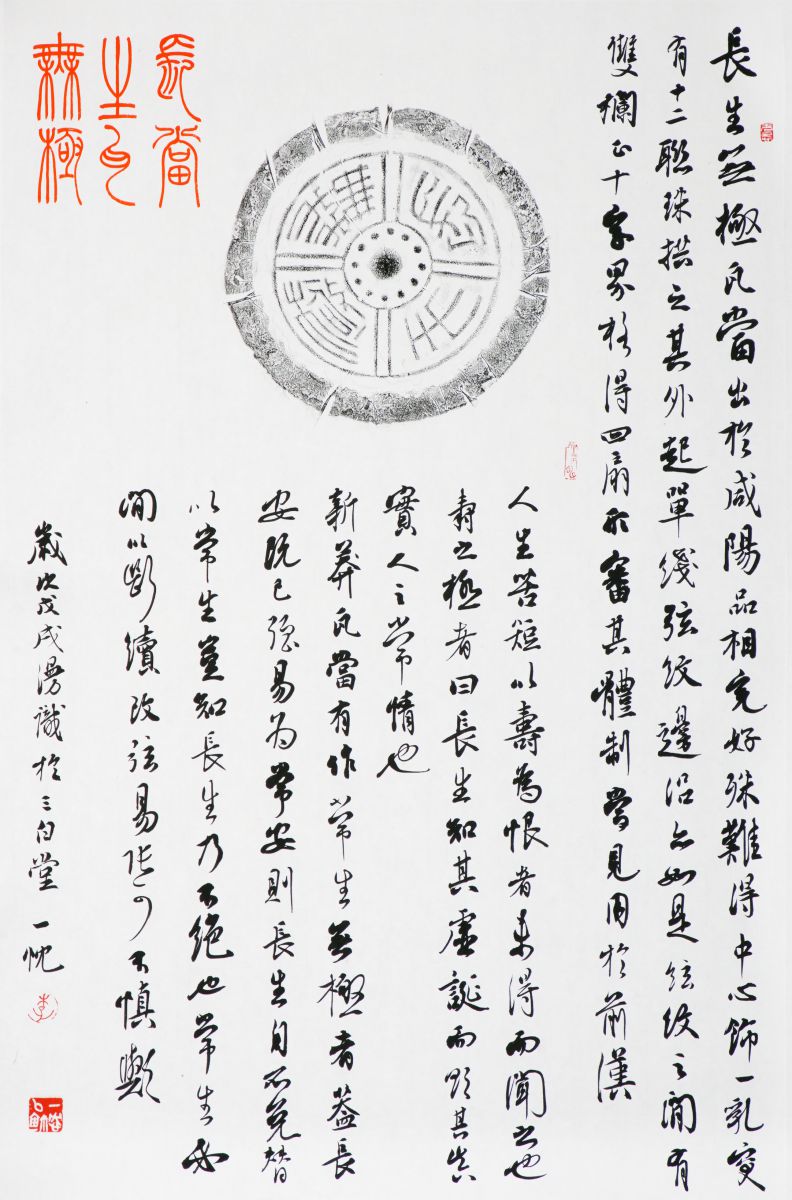 長生無極瓦當
長生無極
長生無極瓦當出於咸陽品相完好殊難得中心飾一乳突
有十二聯珠拱之其外起單綫弦紋邊沿亦如是弦紋之間有
雙欄正十字界格得四扇形審其體制常見用於前漢
人生苦短以壽為恨者未得而聞之也
壽之極者曰長生知其虛誕而其真
實人之常情也
新莽瓦當有作常生無極者蓋長
安既已强易為常安則長生自不免替
以常生豈知長生乃不絕也常生必
間以斷續改弦易張可不慎歟
歲次戊戌漫識於三白堂一忱